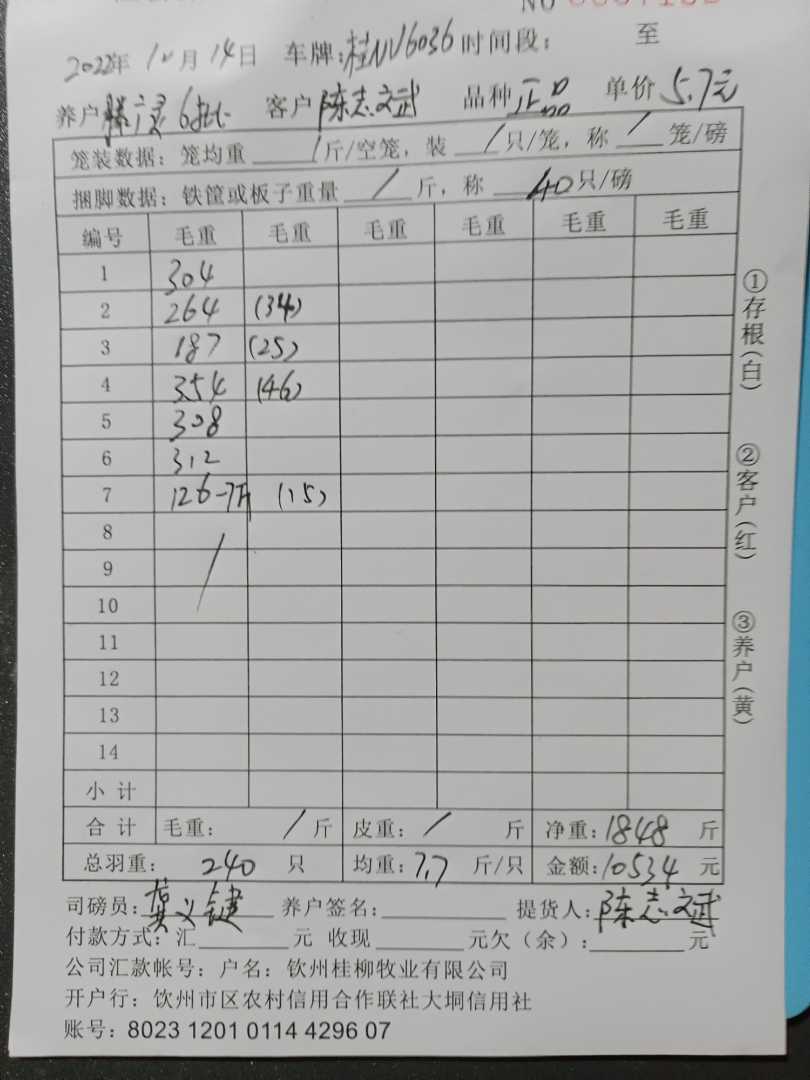 2022年 12月 14日 车牌:桂NV6036 时间段: 至
养户 滕灵 6批 客户 陈志文武 品种 正品 单价 5.7元
笼装数据: 笼均重 / 斤/空笼, 装 / 只/笼, 称 / 笼/磅
捆脚数据: 铁筐或板子重量 / 斤, 称 40只/磅
编号 毛重 毛重 毛重 毛重 毛重 毛重
1 304
2 264 (34)
3 187 (25)
4 354 (46)
5 308
6 312
7 126-7斤 (15)
8
9 /
10
11
12
13
14
小计
合计 毛重: / 斤 皮重: / 斤 净重: 1848 斤
总羽重: 240 只 均重: 7.7 斤/只 金额: 10534 元
司磅员: 龚义键 养户签名: 提货人: 陈志文武
付款方式: 汇 元 收现 元欠(余): 元
公司汇款帐号: 户名: 钦州桂柳牧业有限公司
开户行: 钦州市区农村信用合作联社大垌信用社
账号: 8023 1201 0114 4296 07
①存根(白)
②客户(红)
③养户(黄)